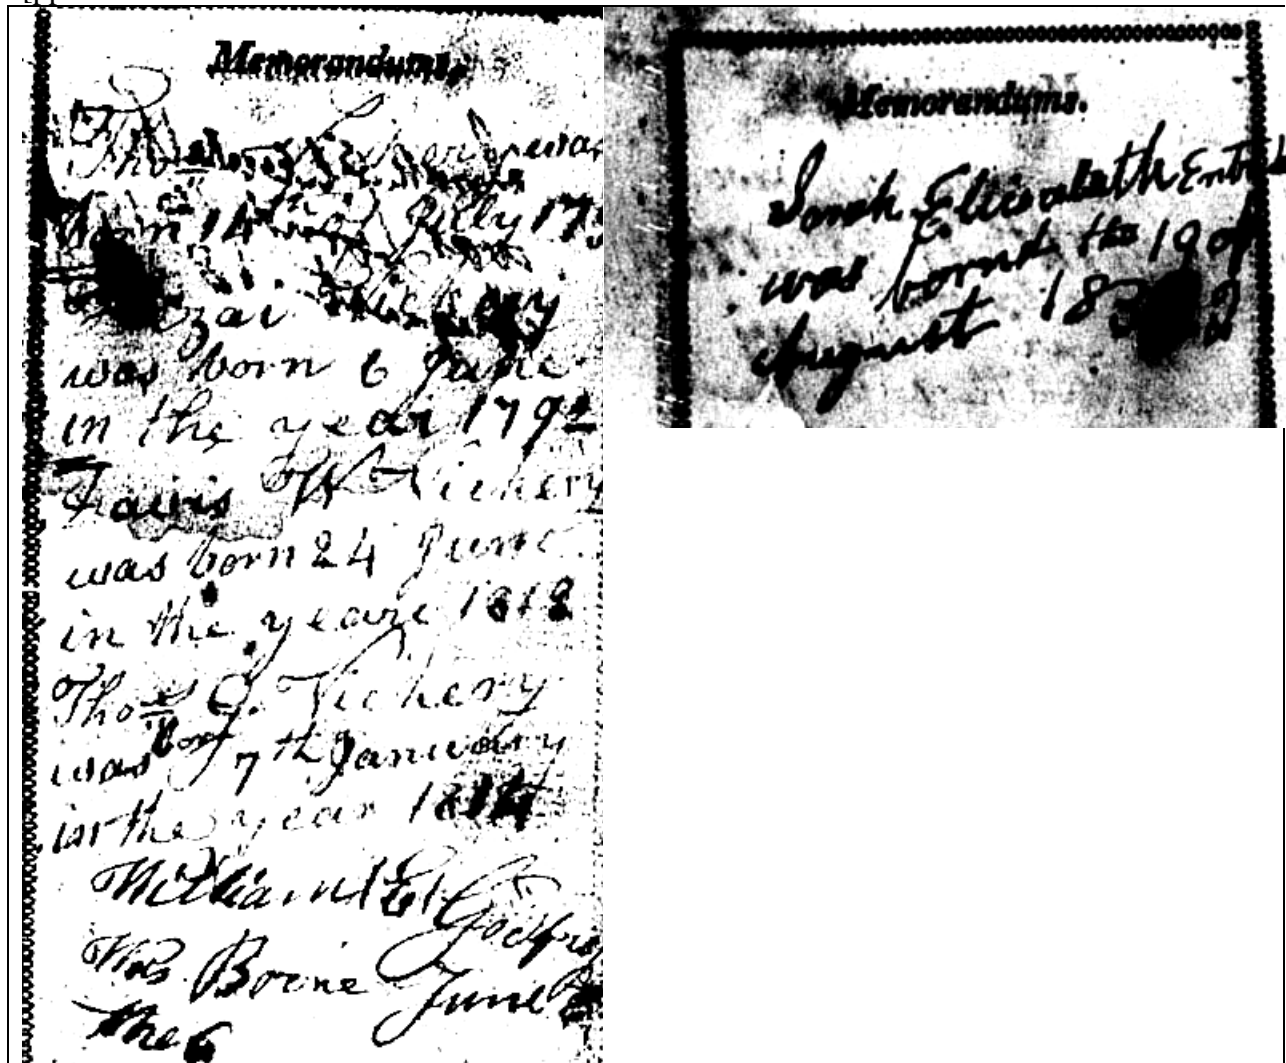 Memorandums.
Thos Vickery was
born 14th of Jully 179
zai Vickery
was born 6 June
in the year 1792
W Vickery
was born 24 June
in the yeare 1818
Thos G. Vickery
was born 7th January
in the year 1814
William E Godfrey
Was Borne June
the 6
Memorandums.
Sarah Ellisabath
was bornd the 19 of
August 18